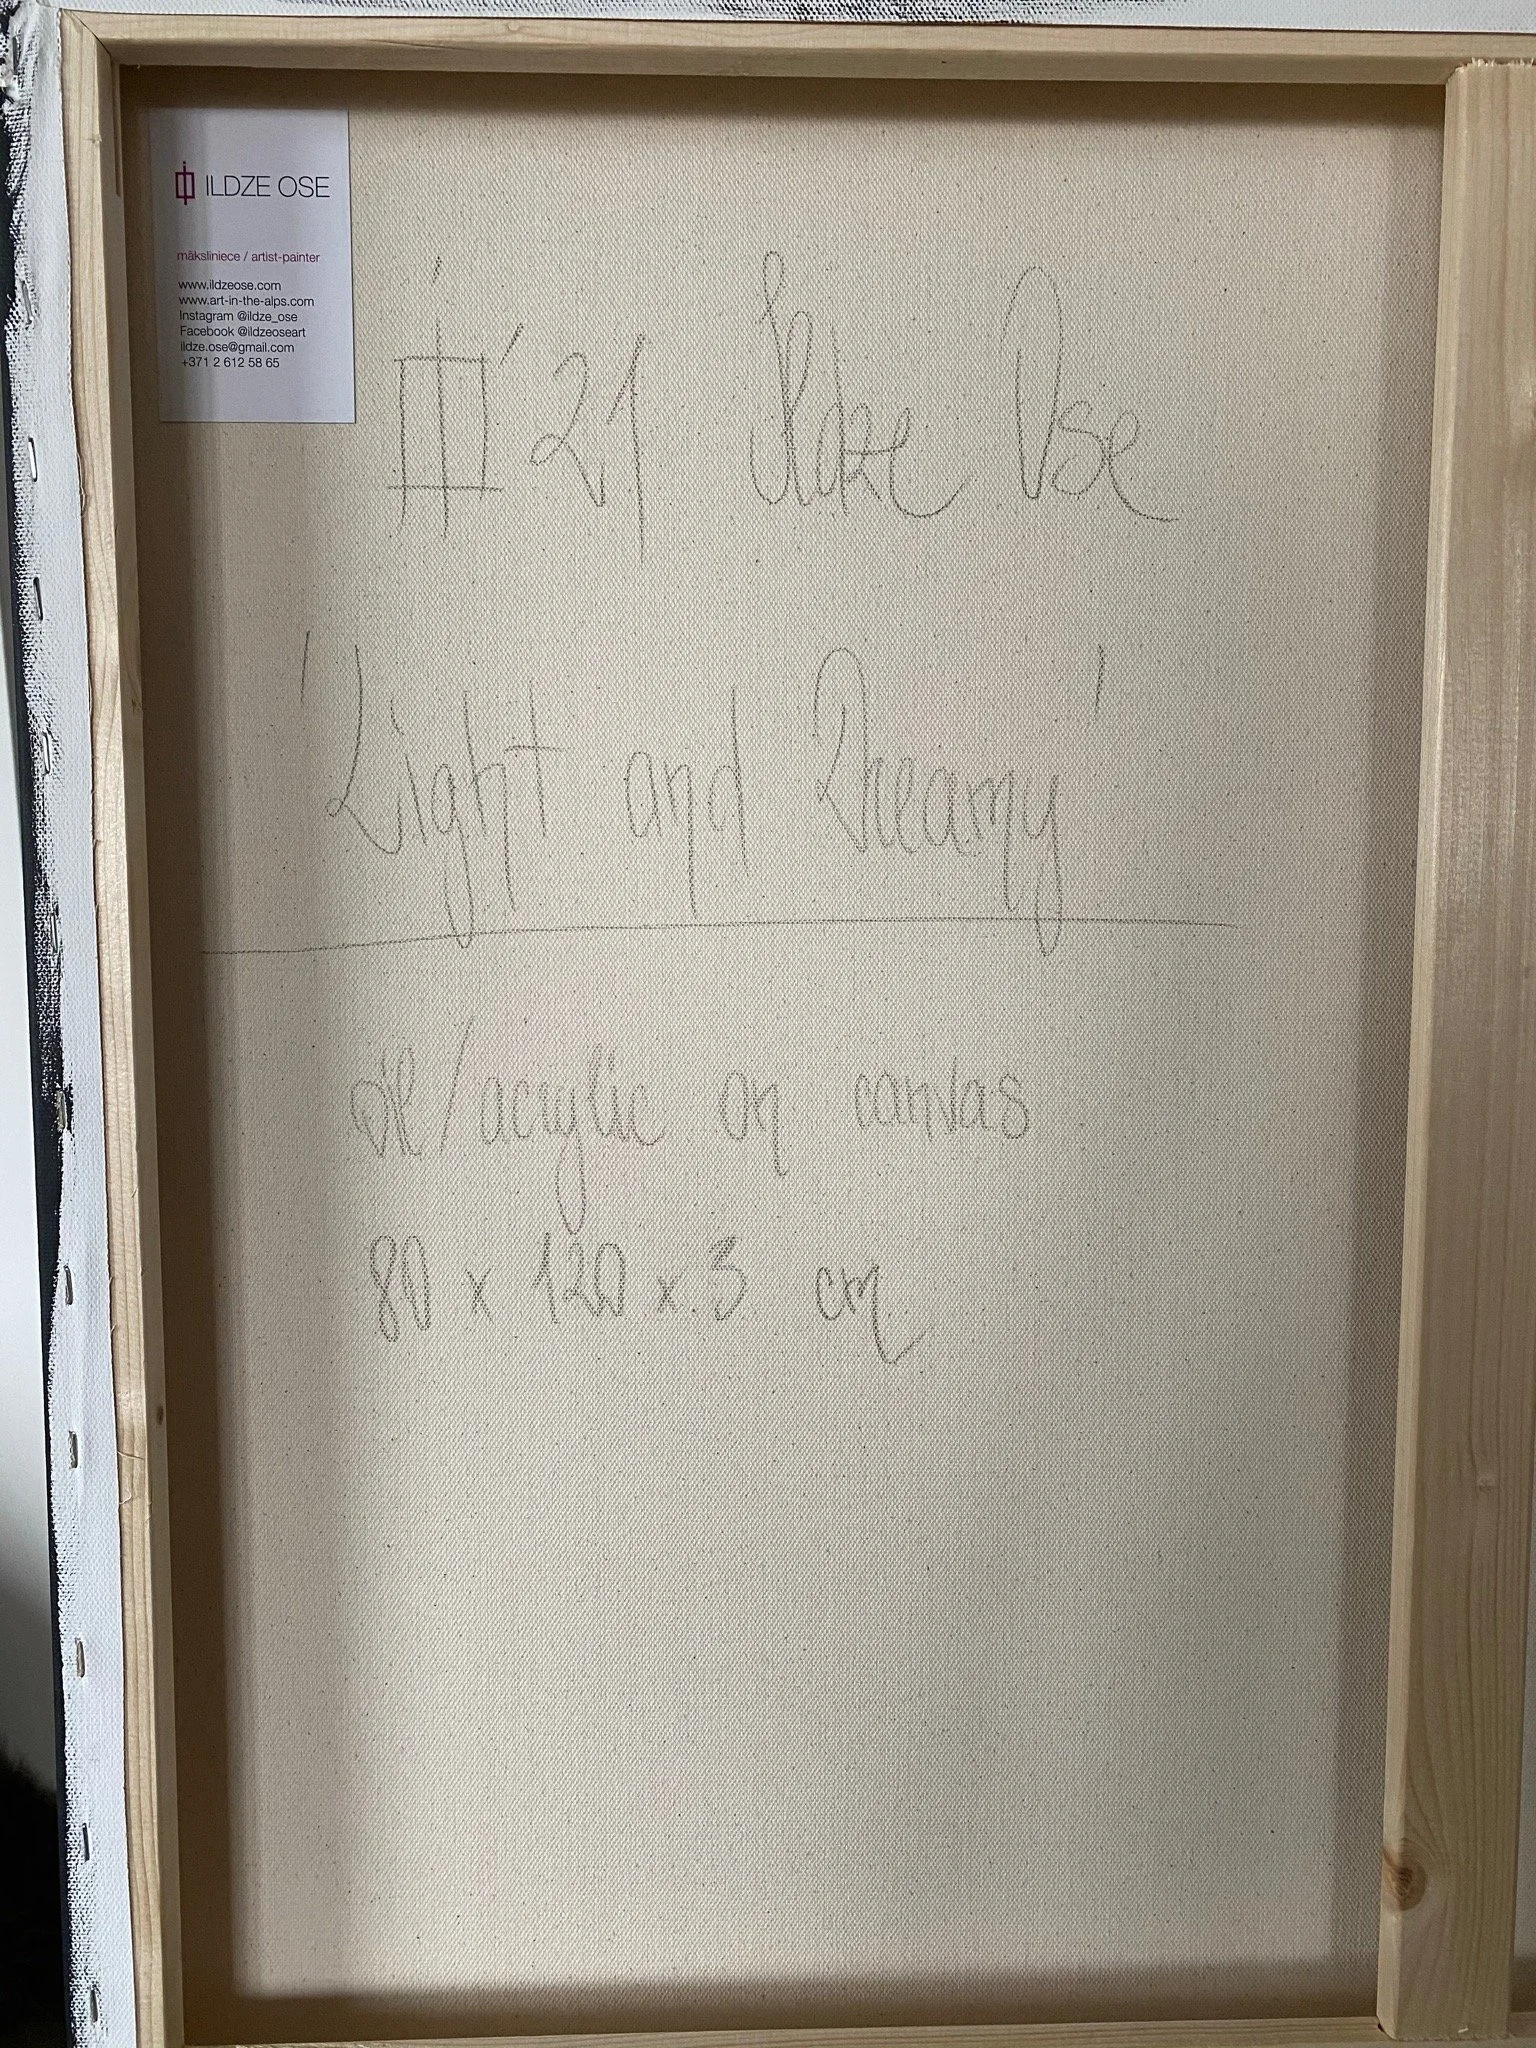 ILDZE OSE
māksliniece / artist-painter
www.ildzeose.com
www.art-in-the-alps.com
Instagram @ildze_ose
Facebook @ildzeoseart
ildze.ose@gmail.com
+371 2 612 58 65
'21 Ildze Ose
'Light and Dreamy'
oil/acrylic on canvas
80 x 120 x 3 cm